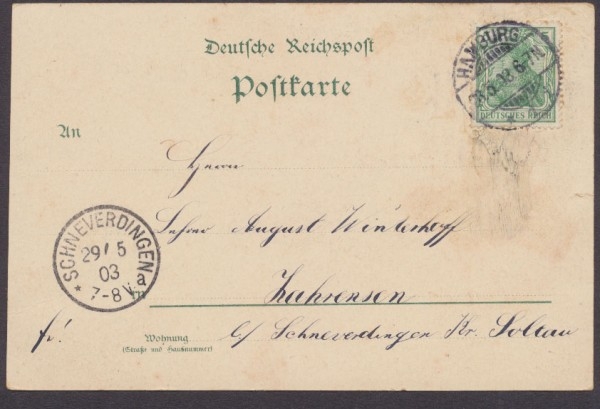 Deutsche Reichspost
Postkarte
HAMBURG
6-7N
DEUTSCHES REICH
An
Herrn
Lehrer August Winterhoff
SCHNEVERDINGEN
29/5
03
7-8V
a
Zahrensen
fr!
b/ Schneverdingen Kr. Soltau
Wohnung
(Straße und Hausnummer)